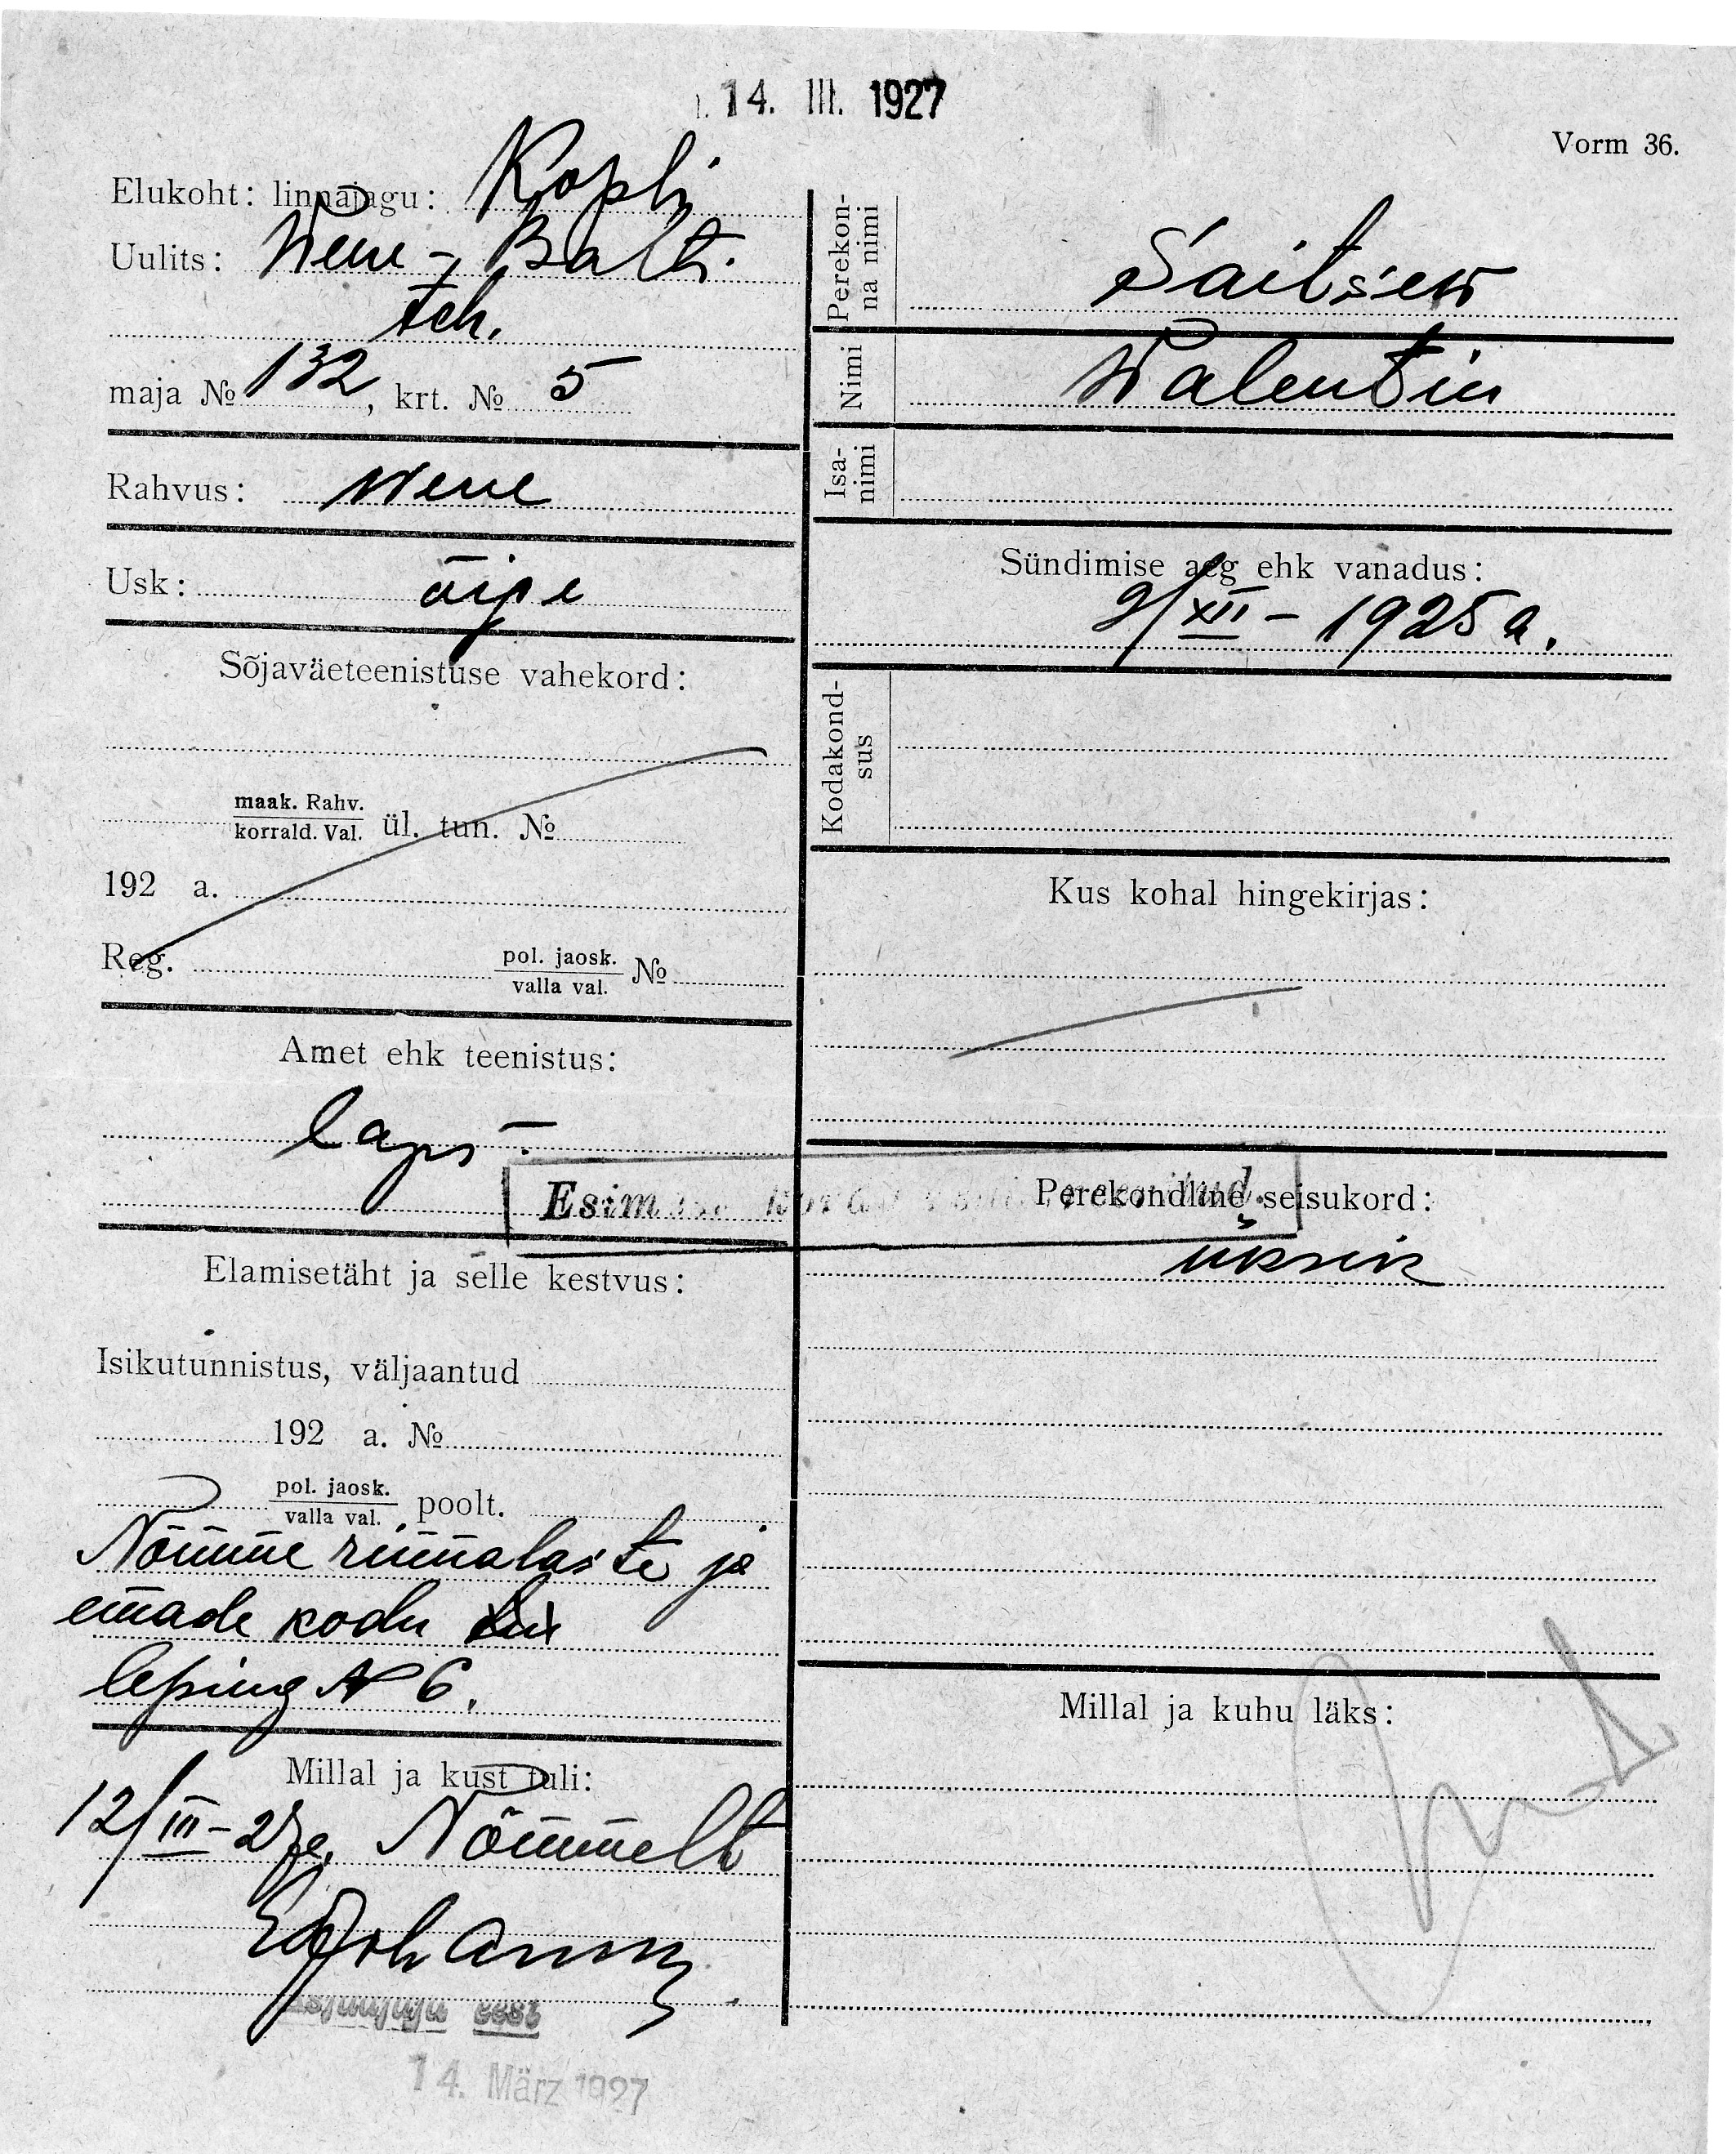 14. III. 1927
Vorm 36.
Elukoht: linnajagu: Kopli
Uulits: Wene-Balti
teh.
maja № 132, krt. № 5
Rahvus: Wene
Usk: õige
Sõjaväeteenistuse vahekord:
maak. Rahv.
korrald. Val. ül. tun. №
192 a.
Reg. pol. jaosk.
valla val. №
Amet ehk teenistus:
laps -
Elamisetäht ja selle kestvus:
Isikutunnistus, väljaantud
192 a. №
pol. jaosk.
valla val. poolt.
Nõmme rinnalaste ja
emade kodu
leping № 6.
Millal ja kust tuli:
12/III-27 a. Nõmmelt
eest
14. März 1927
Perekon-
na nimi
Saitsew
Nimi
Walentin
Isa-
nimi
Sündimise aeg ehk vanadus:
2/XII - 1925 a.
Kodakond-
sus
Kus kohal hingekirjas:
Perekondline seisukord:
üksik
Millal ja kuhu läks: